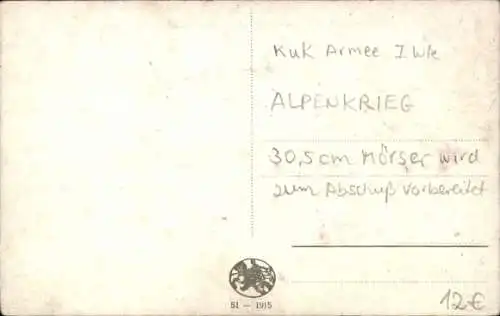 KuK Armee I Wk
ALPENKRIEG
30,5cm Mörser wird
zum Abschuß vorbereitet
51 — 1915
12€